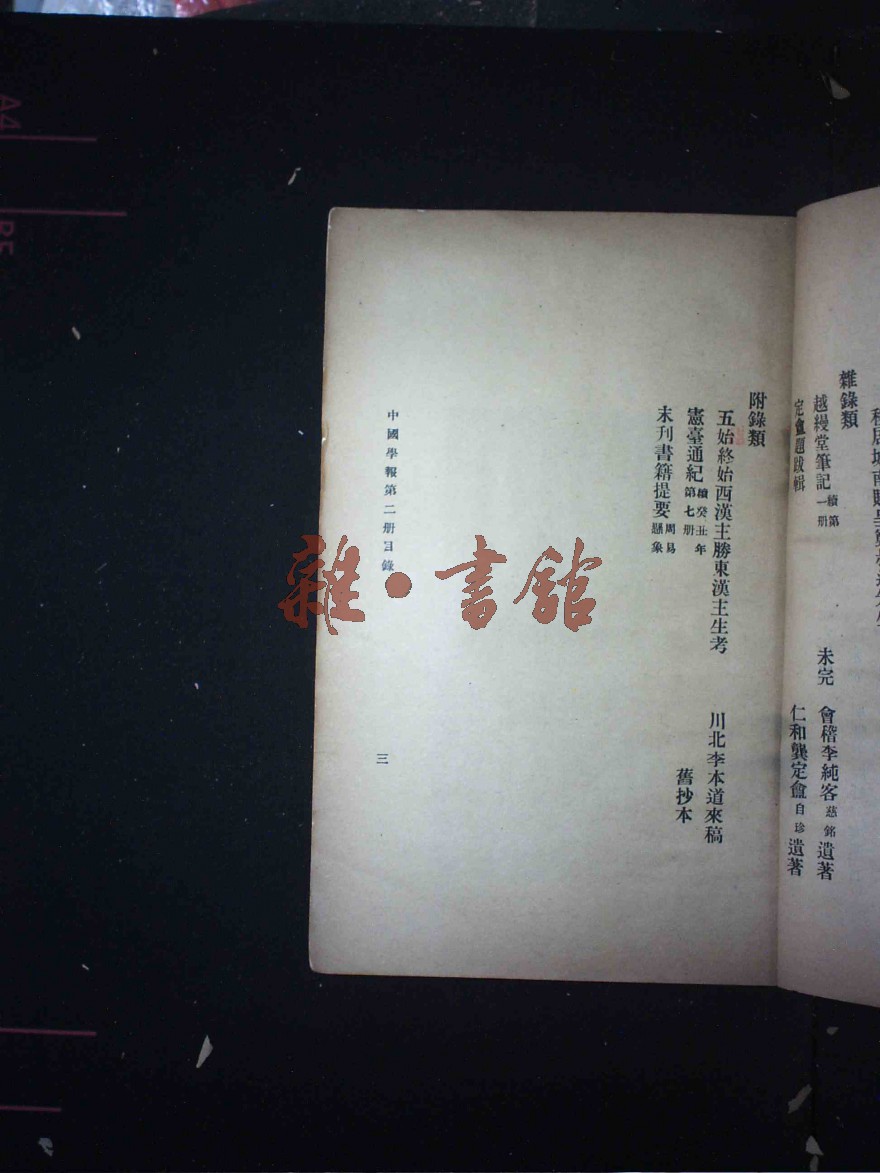 雜錄類
越縵堂筆記 續第一册 未完 會稽李純客 慈銘 遺著
定盦題跋輯 仁和龔定盦 自珍 遺著
附錄類
五始終始西漢主勝東漢主生考 川北李本道來稿
憲臺通紀 續癸丑年第七册 舊抄本
未刊書籍提要 周易懸象
中國學報第二册目錄 三
雜·書館
A4